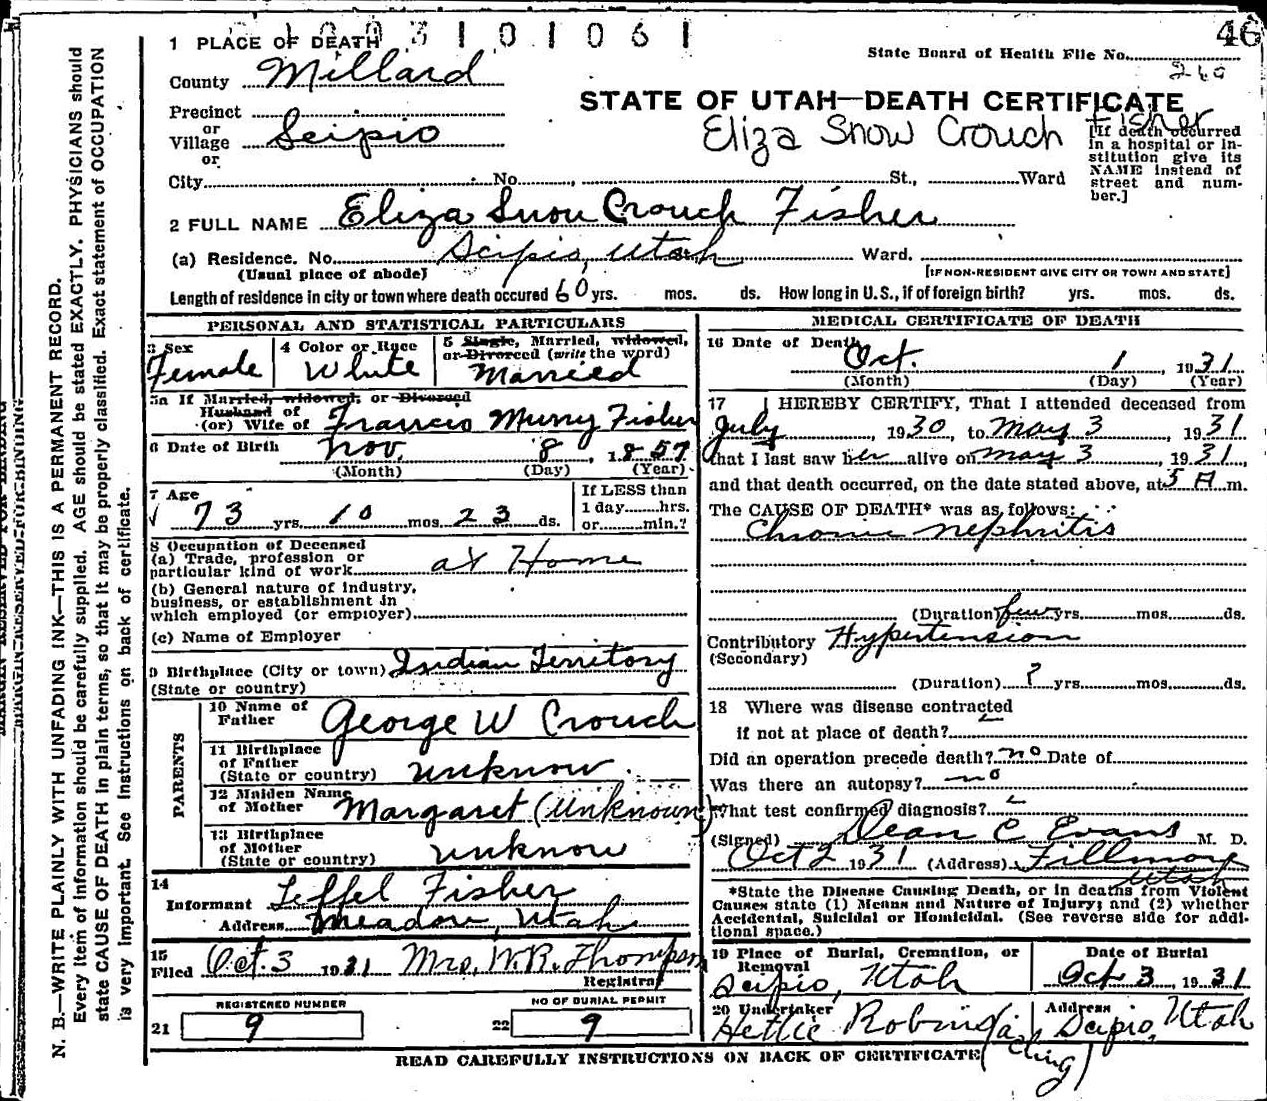 1003101061
46
1 PLACE OF DEATH
State Board of Health File No.
260
County Millard
STATE OF UTAH—DEATH CERTIFICATE
Precinct
or
Village Scipio
or
Eliza Snow Crouch Fisher
[If death occurred in a hospital or in-
stitution give its
NAME instead of
street and num-
ber.]
City No. , St., Ward
2 FULL NAME Eliza Snow Crouch Fisher
(a) Residence. No. Scipio, Utah Ward.
(Usual place of abode)
[IF NON-RESIDENT GIVE CITY OR TOWN AND STATE]
Length of residence in city or town where death occured 60 yrs. mos. ds. How long in U.S., if of foreign birth? yrs. mos. ds.
PERSONAL AND STATISTICAL PARTICULARS
3 Sex
Female
4 Color or Race
White
5 Single, Married, widowed,
or Divorced (write the word)
Married
5a If Married, widowed, or Divorced
Husband of
(or) Wife of Francis Murry Fisher
6 Date of Birth Nov. 8, 1857
(Month) (Day) (Year)
7 Age
73 yrs. 10 mos. 23 ds.
If LESS than
1 day hrs.
or min.?
8 Occupation of Deceased
(a) Trade, profession or
particular kind of work at Home
(b) General nature of industry,
business, or establishment in
which employed (or employer)
(c) Name of Employer
9 Birthplace (City or town) Indian Territory
(State or country)
PARENTS
10 Name of
Father George W Crouch
11 Birthplace
of Father
(State or country) unknow
12 Maiden Name
of Mother Margaret (Unknown)
13 Birthplace
of Mother
(State or country) unknow
14
Informant Leffel Fisher
Address Meadow, Utah
15
Filed Oct. 3 1931 Mrs. W.R. Thompson
Registrar
REGISTERED NUMBER
21 9
NO OF BURIAL PERMIT
22 9
MEDICAL CERTIFICATE OF DEATH
16 Date of Death
Oct. 1, 1931
(Month) (Day) (Year)
17 I HEREBY CERTIFY, That I attended deceased from
July, 1930, to May 3, 1931
that I last saw her alive on May 3, 1931,
and that death occurred, on the date stated above, at 5 A m.
The CAUSE OF DEATH* was as follows:
Chronic nephritis
(Duration) few yrs. mos. ds.
Contributory Hypertension
(Secondary)
(Duration) ? yrs. mos. ds.
18 Where was disease contracted
if not at place of death?
Did an operation precede death? no Date of
Was there an autopsy? no
What test confirmed diagnosis?
(Signed) Dean C Evans M. D.
Oct 2 1931 (Address) Fillmore
Utah
*State the Disease Causing Death, or in deaths from Violent
Causes state (1) Means and Nature of Injury; and (2) whether
Accidental, Suicidal or Homicidal. (See reverse side for addi-
tional space.)
19 Place of Burial, Cremation, or
Removal
Scipio, Utah
Date of Burial
Oct 3, 1931
20 Undertaker
Hettie Robins (acting)
Address
Scipio, Utah
READ CAREFULLY INSTRUCTIONS ON BACK OF CERTIFICATE
N. B.—WRITE PLAINLY WITH UNFADING INK—THIS IS A PERMANENT RECORD.
Every item of information should be carefully supplied. AGE should be stated EXACTLY. PHYSICIANS should
state CAUSE OF DEATH in plain terms, so that it may be properly classified. Exact statement of OCCUPATION
is very important. See instructions on back of certificate.
MARGIN RESERVED FOR BINDING